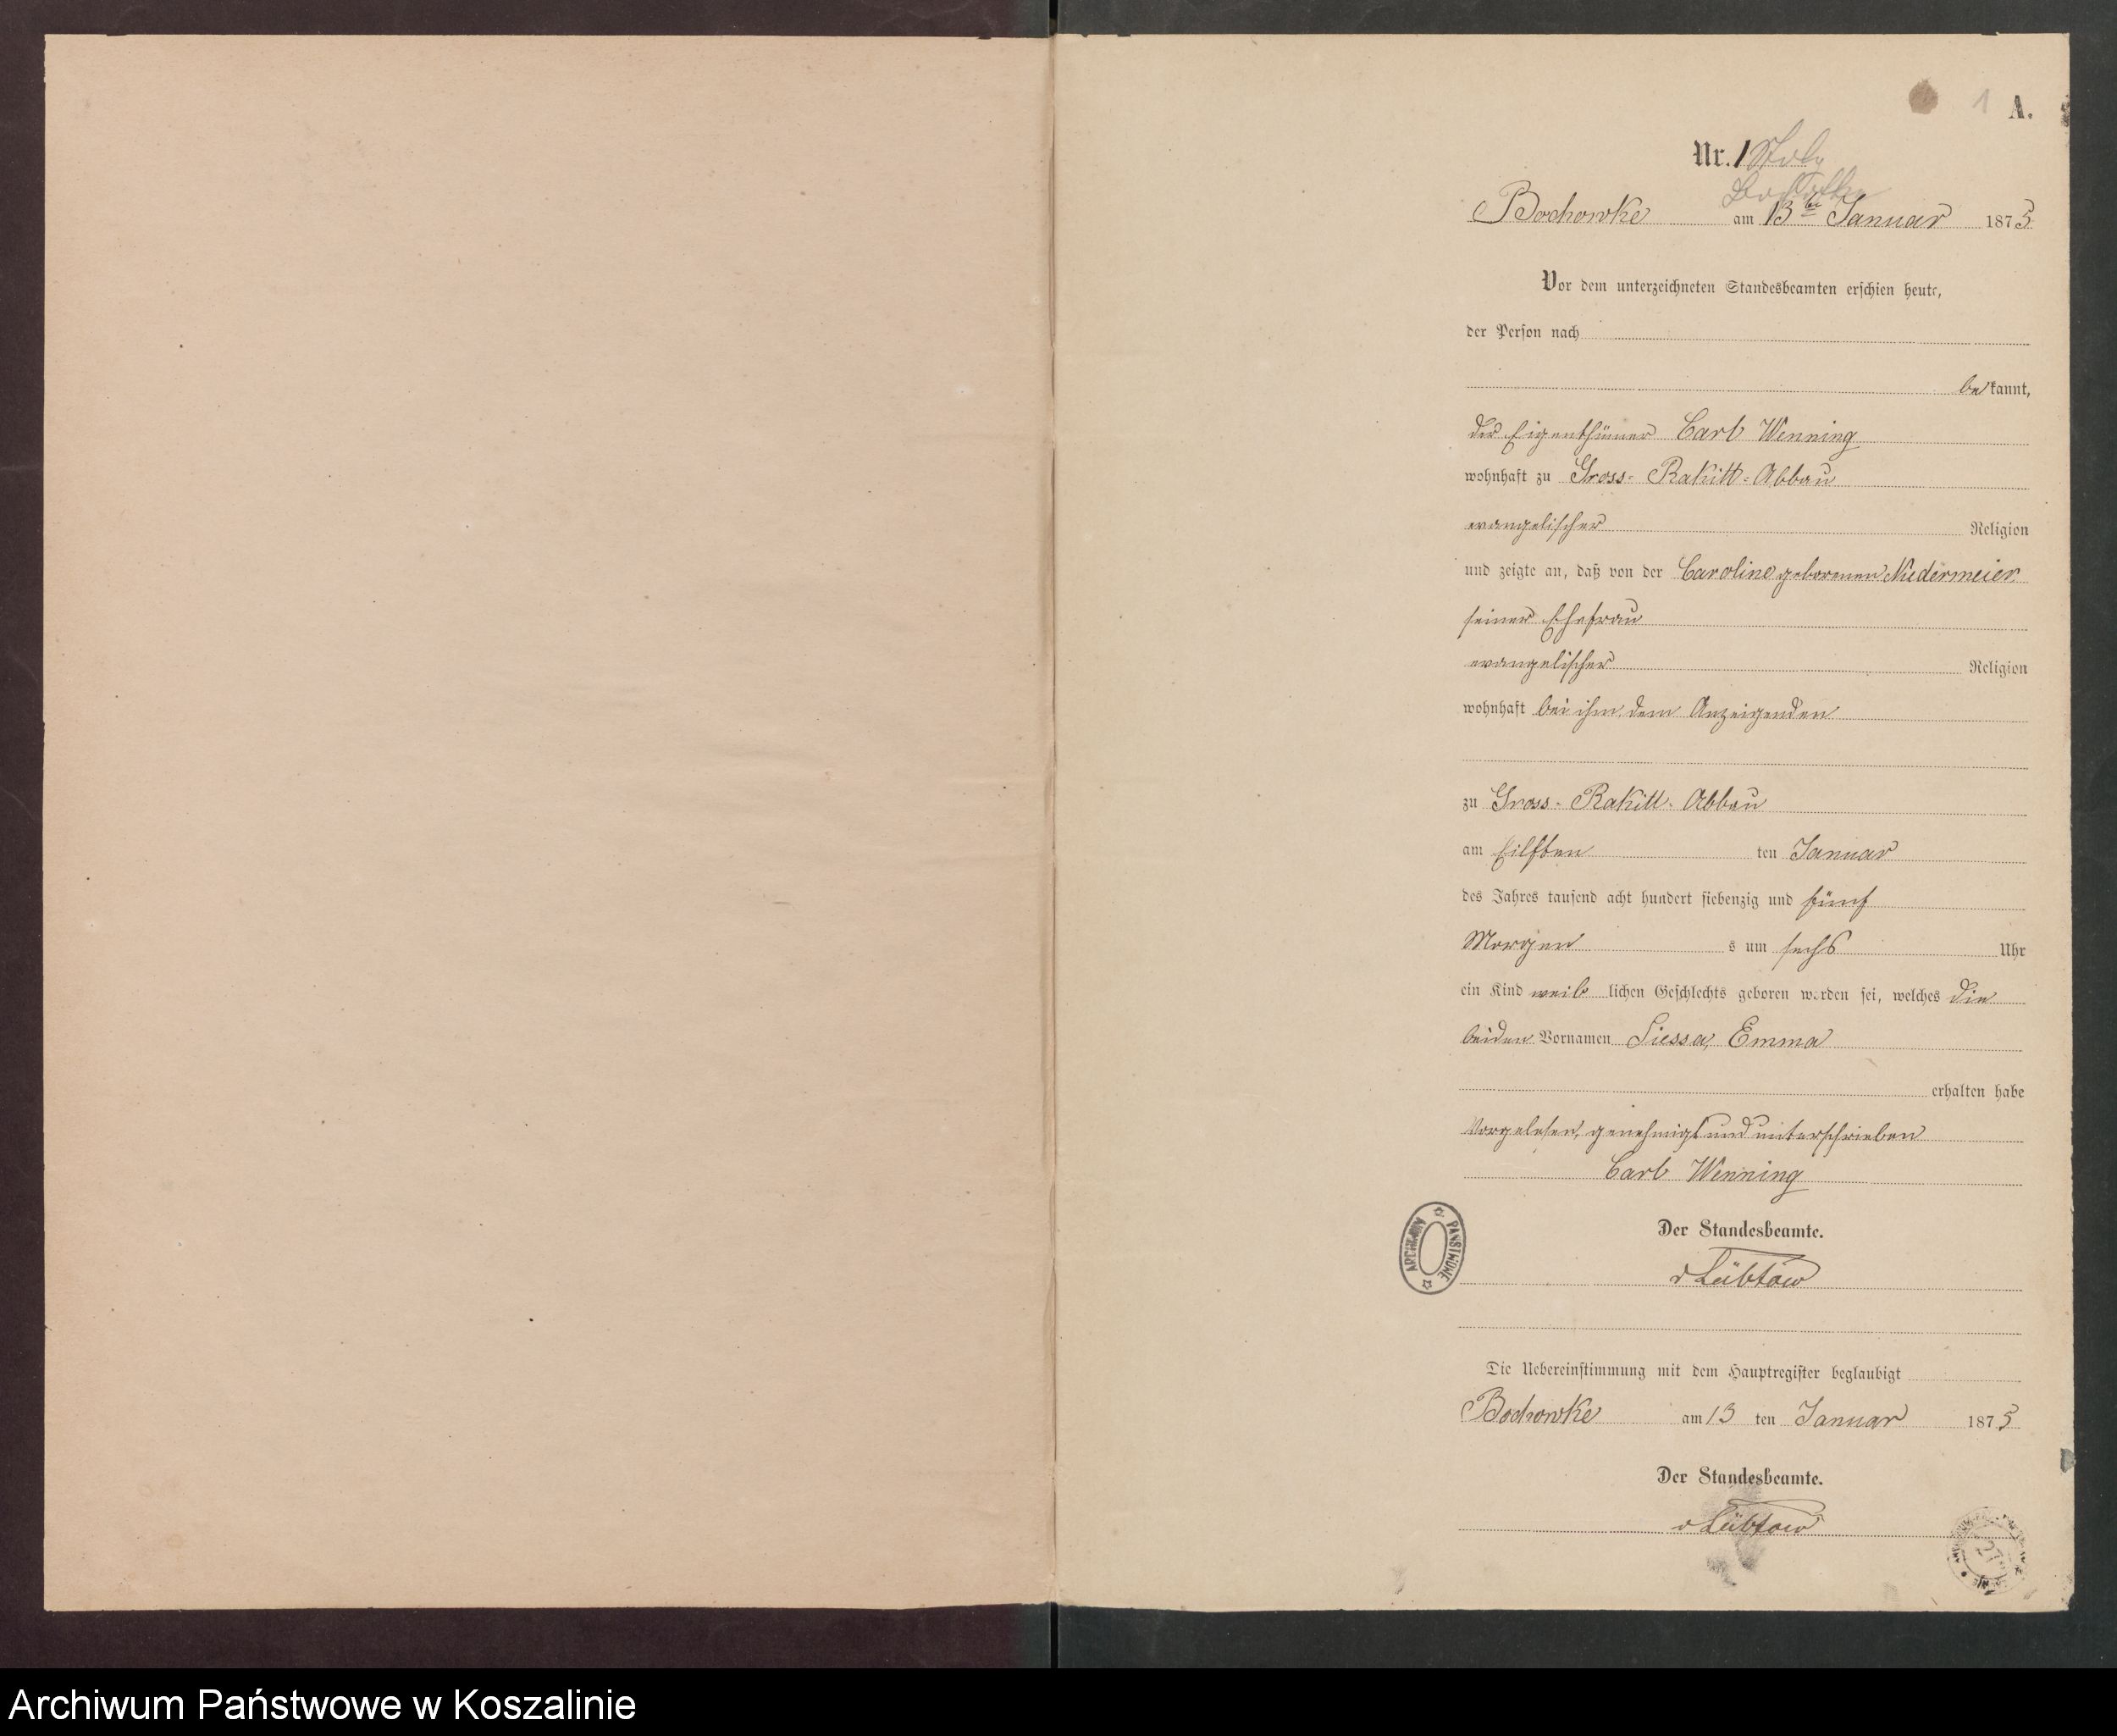 1 A.
Nr. 1 Stolp
Bochowke am 13ten Januar 1875
Vor dem unterzeichneten Standesbeamten erschien heute,
der Person nach
bekannt,
der Eigenthümer Carl Wenning
wohnhaft zu Gross-Rakitt-Abbau
evangelischer Religion
und zeigte an, daß von der Caroline geborenen Niedermeier
seiner Ehefrau
evangelischer Religion
wohnhaft bei ihm dem Anzeigenden
zu Gross-Rakitt-Abbau
am Eilften ten Januar
des Jahres tausend acht hundert siebenzig und fünf
Morgen s um sechs Uhr
ein Kind weib lichen Geschlechts geboren worden sei, welches die
beiden Vornamen Liessa, Emma
erhalten habe
Vorgelesen, genehmigt und unterschrieben
Carl Wenning
Der Standesbeamte.
v Lübtow
ARCHIWUM PAŃSTWOWE
Die Uebereinstimmung mit dem Hauptregister beglaubigt
Bochowke am 13 ten Januar 1875
Der Standesbeamte.
v Lübtow
Archiwum Państwowe w Koszalinie